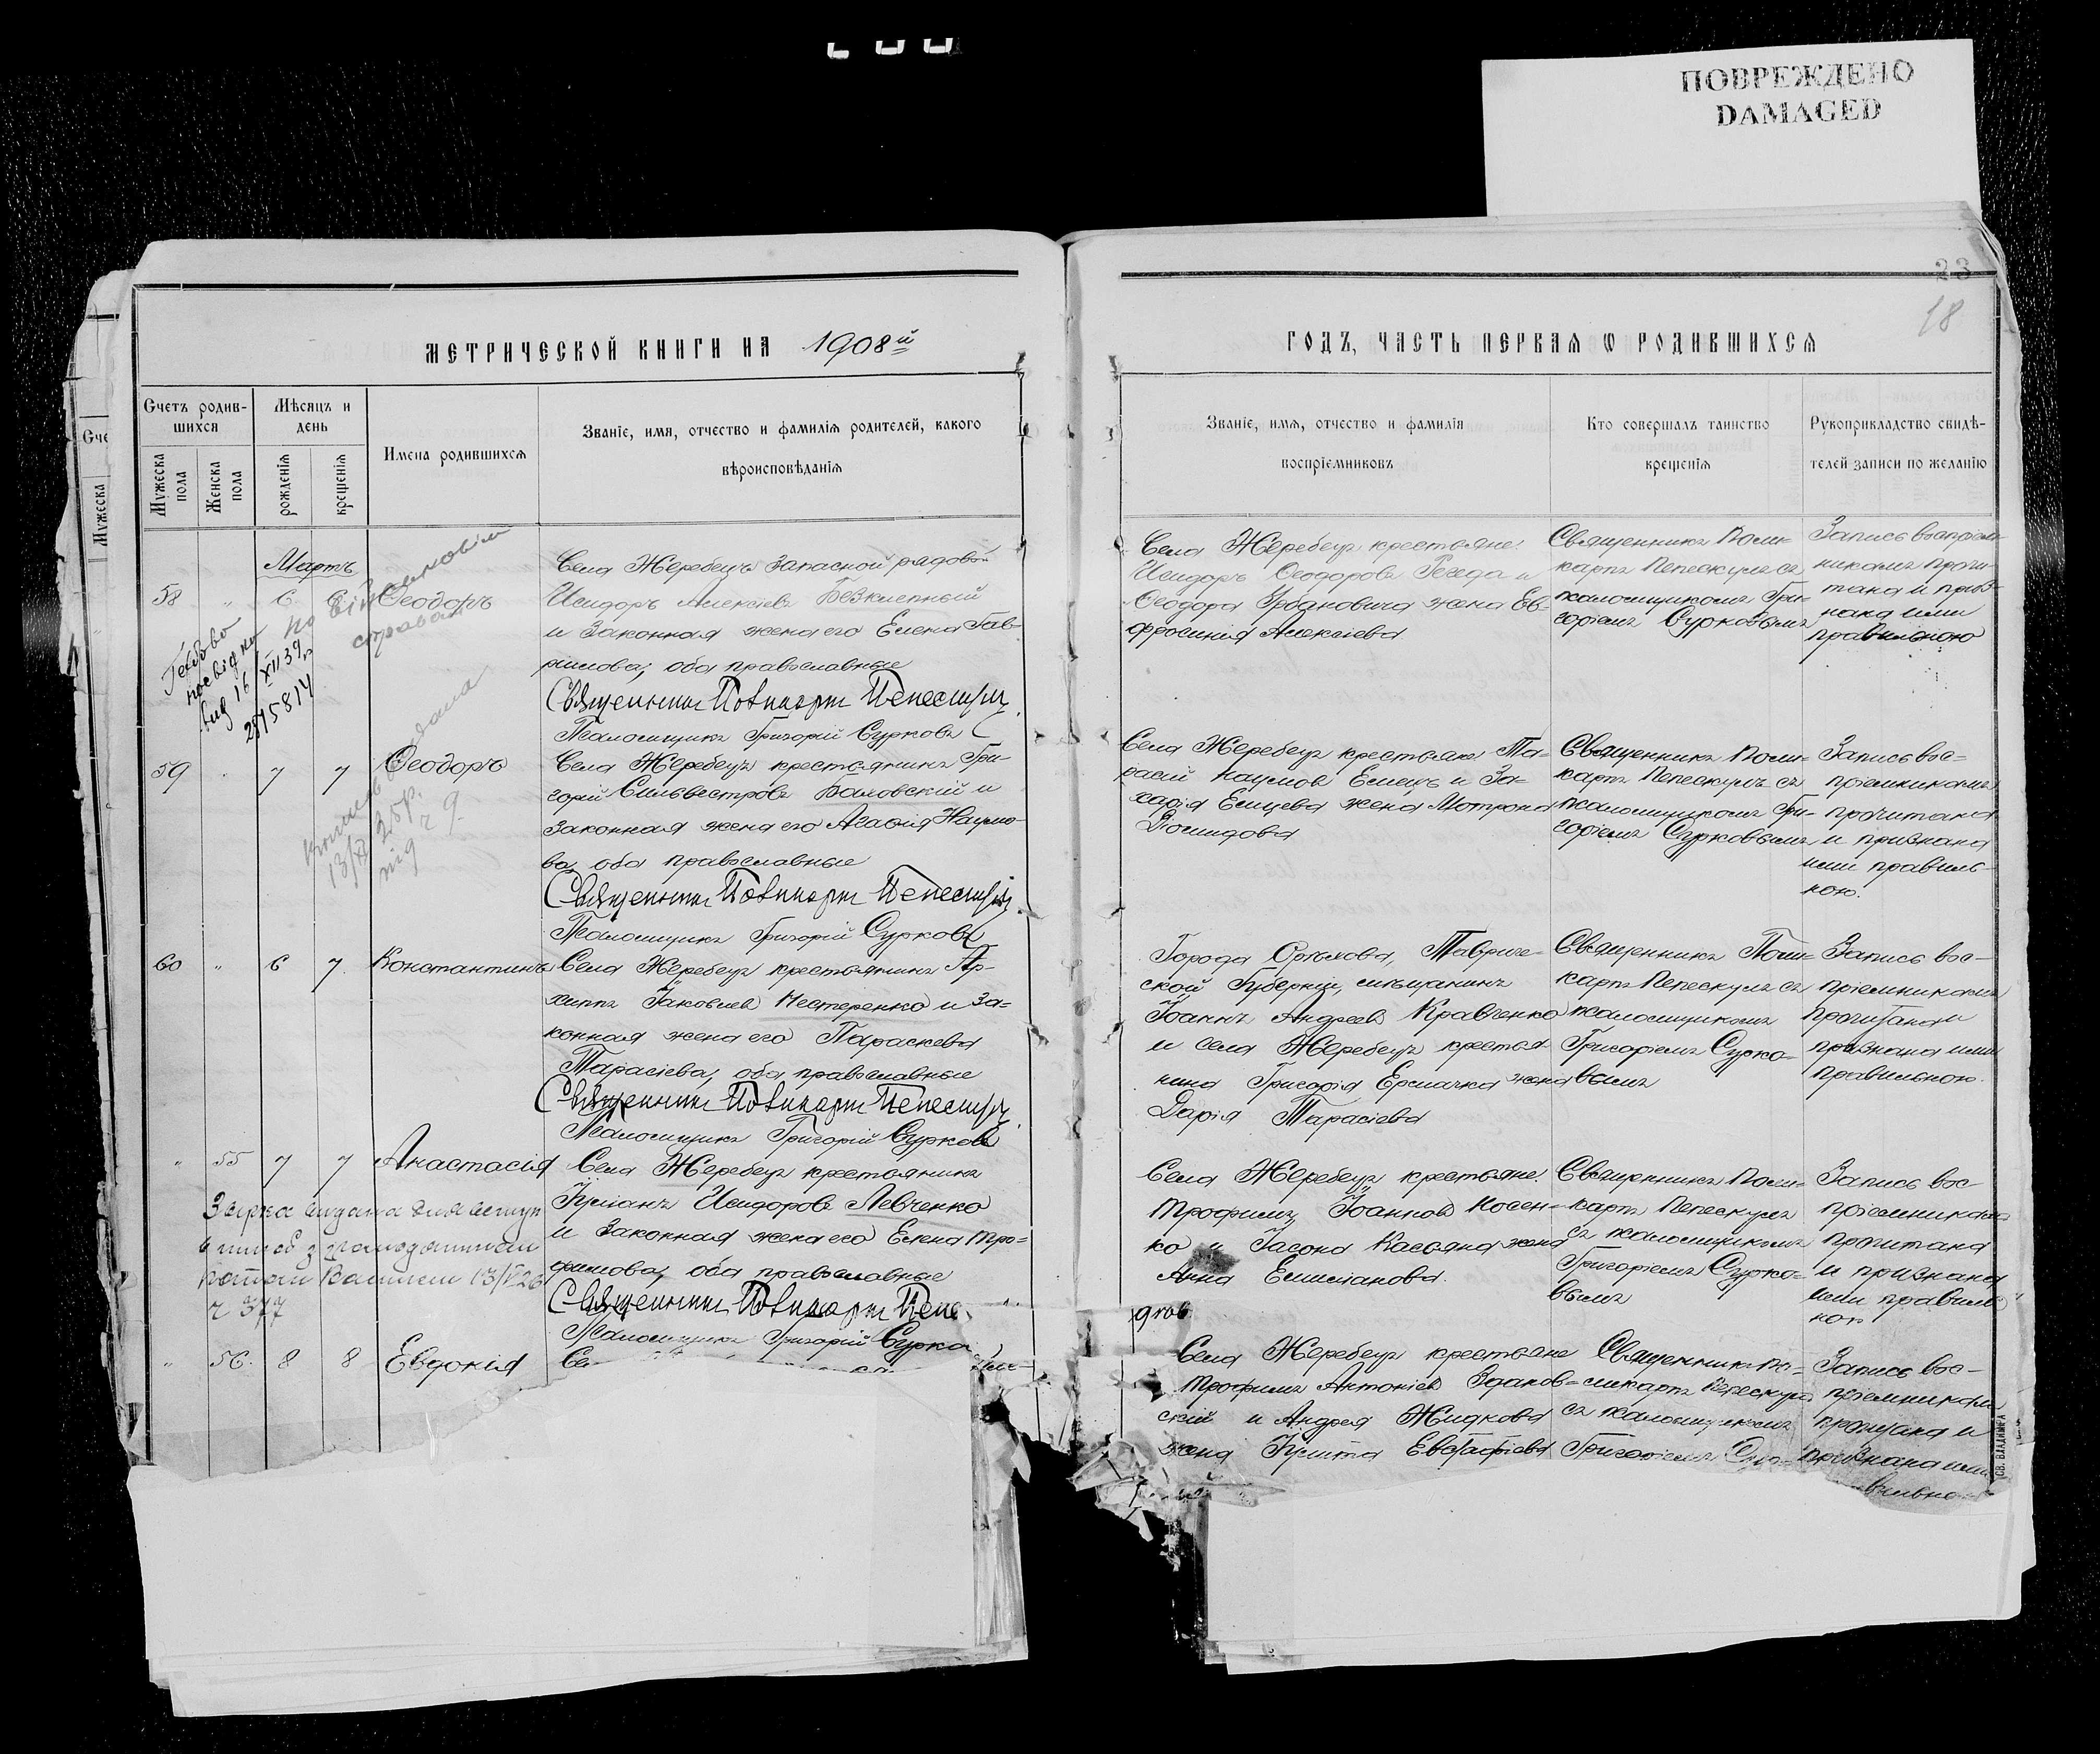 ПОВРЕЖДЕНО
DAMAGED
23
18
МЕТРИЧЕСКОЙ КНИГИ НА 1908й
ГОДЪ, ЧАСТЬ ПЕРВАЯ Ѡ РОДИВШИХСЯ
Счетъ родив-
шихся
Мужеска пола
Женска пола
Мѣсяцъ и
день
рожденія
крещенія
Имена родившихся
Званіе, имя, отчество и фамилія родителей, какого
вѣроисповѣданія
Званіе, имя, отчество и фамилія
воспріемниковъ
Кто совершалъ таинство
крещенія
Рукоприкладство свидѣ-
телей записи по желанію
Мартъ
58 " 6 6 Ѳеодоръ
Села Жеребецъ запасной рядовой
Исидоръ Алексіевъ Безклепный
и законная жена его Елена Гав-
риилова, оба православные
Священникъ Поликарпъ Пепескулъ
Псаломщикъ Григорій Сурковъ
Села Жеребецъ крестьяне
Исидоръ Ѳеодоровъ Регеда и
Ѳеодора Урбановича жена Ев-
фросинія Алексіева
Священникъ Поли-
карпъ Пепескулъ съ
псаломщикомъ Гри-
горіемъ Сурковымъ
Запись воспріем-
никамъ прочи-
тана и приз-
нана ими
правильною
16/XII 39
2815814
59 " 7 7 Ѳеодоръ
Села Жеребецъ крестьянинъ Гри-
горій Сильвестровъ Баловскій и
законная жена его Агаѳія Наумо-
ва, оба православные
Священникъ Поликарпъ Пепескулъ
Псаломщикъ Григорій Сурковъ
Села Жеребецъ крестьяне Та-
расій Наумовъ Емецъ и За-
харія Емцева жена Мотрона
Діомидова
Священникъ Поли-
карпъ Пепескулъ съ
псаломщикомъ Гри-
горіемъ Сурковымъ
Запись вос-
пріемникамъ
прочитана
и признана
ими правиль-
ною.
60 " 6 7 Константинъ
Села Жеребецъ крестьянинъ Ар-
хиппъ Іаковлевъ Нестеренко и за-
конная жена его Параскева
Тарасіева, оба православные
Священникъ Поликарпъ Пепескулъ
Псаломщикъ Григорій Сурковъ
Города Орѣхова, Тавриче-
ской Губерніи, мѣщанинъ
Іоаннъ Андреевъ Кравченко
и села Жеребецъ крестья-
нина Григорія Ермачка жена
Дарія Тарасіева
Священникъ Поли-
карпъ Пепескулъ съ
псаломщикомъ
Григоріемъ Сурко-
вымъ
Запись вос-
пріемникамъ
прочитана и
признана ими
правильною.
" 55 7 7 Анастасія
Села Жеребецъ крестьянинъ
Іуліанъ Исидоровъ Левченко
и законная жена его Елена Тро-
фимова, оба православные
Священникъ Поликарпъ Пепе
Псаломщикъ Григорій Сурко
Села Жеребецъ крестьяне
Трофимъ Іоанновъ Косен-
ко и Іасона Касьяна жена
Анна Емиліанова.
Священникъ Поли-
карпъ Пепескулъ
съ псаломщикомъ
Григоріемъ Сурко-
вымъ
Запись вос-
пріемникамъ
прочитана
и признана
ими правиль-
ною
" 56. 8 8 Евдокія
Села Жеребецъ крестьяне
Трофимъ Антоніевъ
скій и Андрея Жидкова
жена Іулитта Евстафіева
Священникъ По-
ликарпъ Пепескулъ
съ псаломщикомъ
Григоріемъ
Запись вос-
пріемникамъ
прочитана и
признана ими
СВ. ВЛАДИМІРА